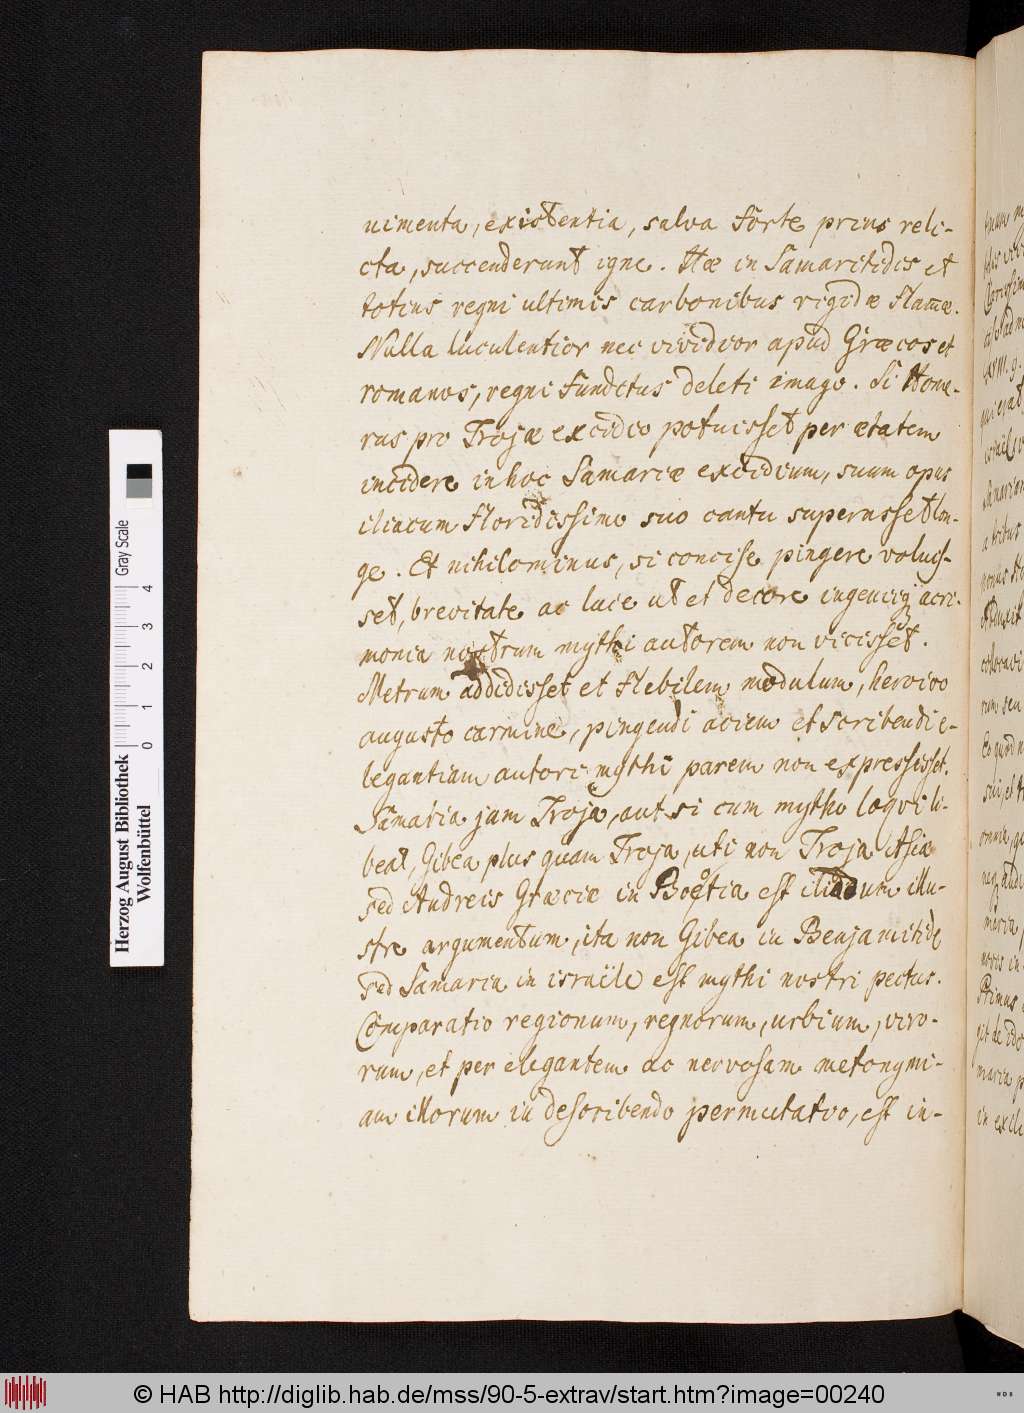 nimenta, existentia, salva forte prius reli-
cta, succenderunt igne. Hæ in Samaritidis et
totius regni ultimis carbonibus rigidæ flam̄æ.
Nulla luculentior nec vividior apud Græcos et
romanos, regni funditus deleti imago. Si Home-
rus pro Trojæ excidio potuisset per ætatem
incidere in hoc Samariæ excidium, suum opus
iliacum floridissimo suo cantu superasset lon-
ge. Et nihilominus, si concise pingere voluis-
set, brevitate ac luce ut et decore ingeniiq acri-
monia nostrum mythi autorem non vicisset.
Metrum addidisset et flebilem modulum, heroico
augusto carmine, pingendi aciem et scribendi e-
legantiam autori mythi parem non expressisset.
Samaria jam Troja, aut si cum mytho loqui li-
beat, Gibea plus quam Troja, uti non Troja Asiæ
sed Andreis Græciæ in Boeotia est iliadum illu-
stre argumentum, ita non Gibea in Benjamitide
sed Samaria in israële est mythi nostri pectus.
Comparatio regionum, regnorum, urbium, viro-
rum, et per elegantem ac nervosam metonymi-
am illorum in describendo permutatio, est in-
Herzog August Bibliothek
Wolfenbüttel
0 1 2 3 4
Gray Scale
© HAB http://diglib.hab.de/mss/90-5-extrav/start.htm?image=00240